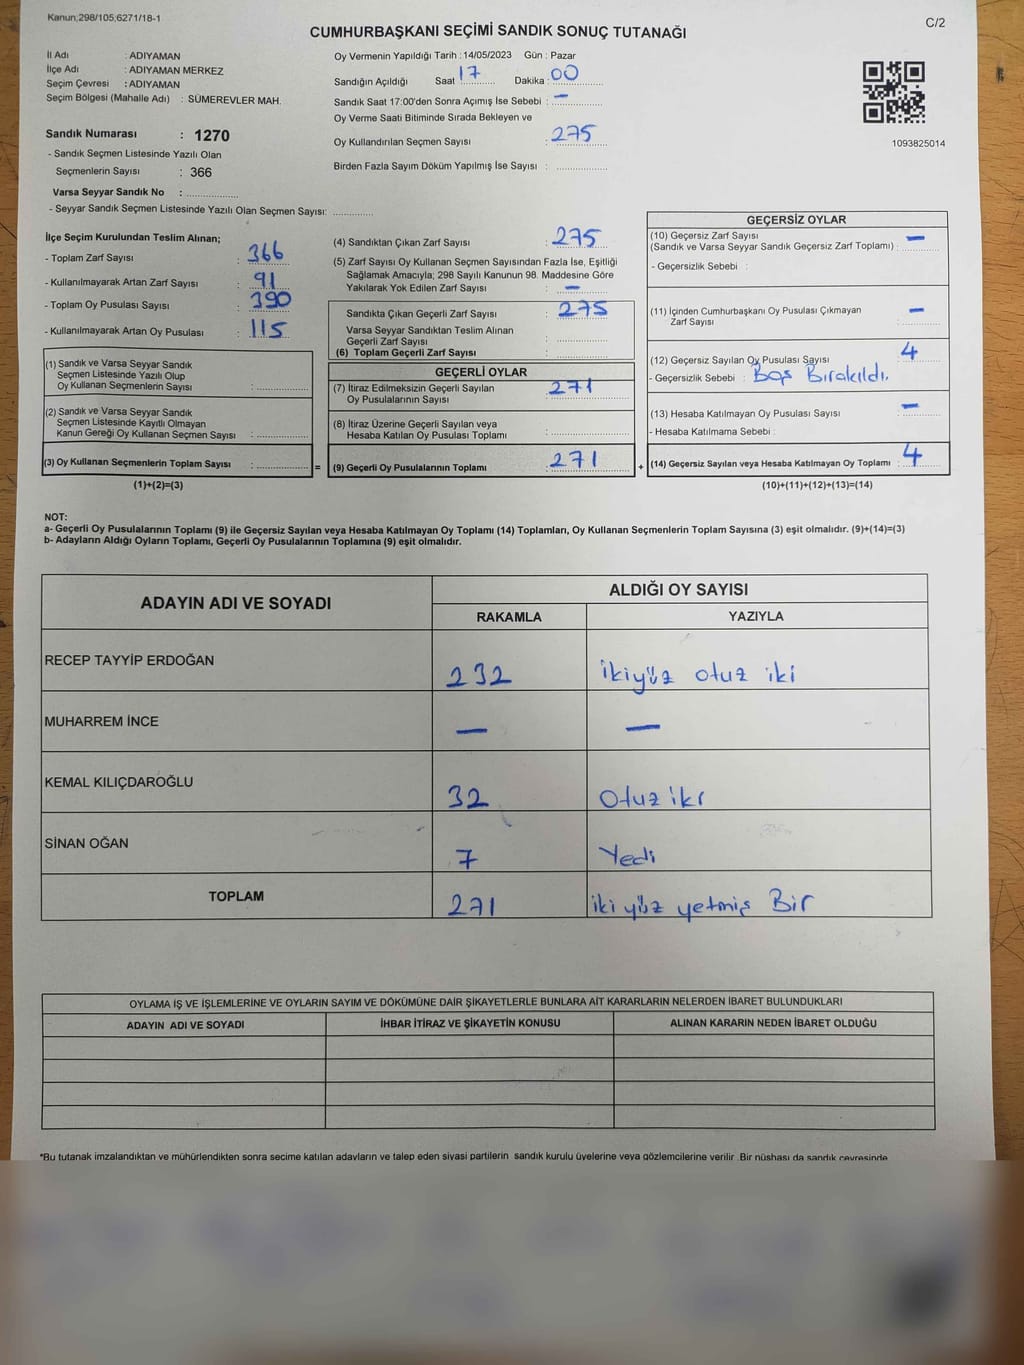 Kanun,298/105,6271/18-1
C/2
CUMHURBAŞKANI SEÇİMİ SANDIK SONUÇ TUTANAĞI
İl Adı : ADIYAMAN
İlçe Adı : ADIYAMAN MERKEZ
Seçim Çevresi : ADIYAMAN
Seçim Bölgesi (Mahalle Adı) : SÜMEREVLER MAH.
Sandık Numarası : 1270
- Sandık Seçmen Listesinde Yazılı Olan
Seçmenlerin Sayısı : 366
Varsa Seyyar Sandık No : ................
- Seyyar Sandık Seçmen Listesinde Yazılı Olan Seçmen Sayısı: ............
Oy Vermenin Yapıldığı Tarih :14/05/2023 Gün : Pazar
Sandığın Açıldığı Saat 17 Dakika 00
Sandık Saat 17:00'den Sonra Açımış İse Sebebi : —
Oy Verme Saati Bitiminde Sırada Bekleyen ve
Oy Kullandırılan Seçmen Sayısı : 275
Birden Fazla Sayım Döküm Yapılmış İse Sayısı : ................
1093825014
İlçe Seçim Kurulundan Teslim Alınan;
- Toplam Zarf Sayısı : 366
- Kullanılmayarak Artan Zarf Sayısı : 91
- Toplam Oy Pusulası Sayısı : 390
- Kullanılmayarak Artan Oy Pusulası : 115
(1) Sandık ve Varsa Seyyar Sandık
Seçmen Listesinde Yazılı Olup
Oy Kullanan Seçmenlerin Sayısı : ................
(2) Sandık ve Varsa Seyyar Sandık
Seçmen Listesinde Kayıtlı Olmayan
Kanun Gereği Oy Kullanan Seçmen Sayısı : ................
(3) Oy Kullanan Seçmenlerin Toplam Sayısı : ................ =
(1)+(2)=(3)
(4) Sandıktan Çıkan Zarf Sayısı : 275
(5) Zarf Sayısı Oy Kullanan Seçmen Sayısından Fazla İse, Eşitliği
Sağlamak Amacıyla; 298 Sayılı Kanunun 98. Maddesine Göre
Yakılarak Yok Edilen Zarf Sayısı : —
Sandıkta Çıkan Geçerli Zarf Sayısı : 275
Varsa Seyyar Sandıktan Teslim Alınan
Geçerli Zarf Sayısı : ................
(6) Toplam Geçerli Zarf Sayısı : ................
GEÇERLİ OYLAR
(7) İtiraz Edilmeksizin Geçerli Sayılan 271
Oy Pusulalarının Sayısı
(8) İtiraz Üzerine Geçerli Sayılan veya
Hesaba Katılan Oy Pusulası Toplamı : ................
(9) Geçerli Oy Pusulalarının Toplamı : 271 +
GEÇERSİZ OYLAR
(10) Geçersiz Zarf Sayısı —
(Sandık ve Varsa Seyyar Sandık Geçersiz Zarf Toplamı) :
- Geçersizlik Sebebi :
(11) İçinden Cumhurbaşkanı Oy Pusulası Çıkmayan —
Zarf Sayısı :
(12) Geçersiz Sayılan Oy Pusulası Sayısı : 4
- Geçersizlik Sebebi : Boş Bırakıldı.
(13) Hesaba Katılmayan Oy Pusulası Sayısı : —
- Hesaba Katılmama Sebebi :
(14) Geçersiz Sayılan veya Hesaba Katılmayan Oy Toplamı : 4
(10)+(11)+(12)+(13)=(14)
NOT:
a- Geçerli Oy Pusulalarının Toplamı (9) ile Geçersiz Sayılan veya Hesaba Katılmayan Oy Toplamı (14) Toplamları, Oy Kullanan Seçmenlerin Toplam Sayısına (3) eşit olmalıdır. (9)+(14)=(3)
b- Adayların Aldığı Oyların Toplamı, Geçerli Oy Pusulalarının Toplamına (9) eşit olmalıdır.
ADAYIN ADI VE SOYADI
ALDIĞI OY SAYISI
RAKAMLA YAZIYLA
RECEP TAYYİP ERDOĞAN 232 ikiyüz otuz iki
MUHARREM İNCE — —
KEMAL KILIÇDAROĞLU 32 Otuz iki
SİNAN OĞAN 7 Yedi
TOPLAM 271 iki yüz yetmiş Bir
OYLAMA İŞ VE İŞLEMLERİNE VE OYLARIN SAYIM VE DÖKÜMÜNE DAİR ŞİKAYETLERLE BUNLARA AİT KARARLARIN NELERDEN İBARET BULUNDUKLARI
ADAYIN ADI VE SOYADI İHBAR İTİRAZ VE ŞİKAYETİN KONUSU ALINAN KARARIN NEDEN İBARET OLDUĞU
*Bu tutanak imzalandıktan ve mühürlendikten sonra seçime katılan adayların ve talep eden siyasi partilerin sandık kurulu üyelerine veya gözlemcilerine verilir .Bir nüshası da sandık çevresinde